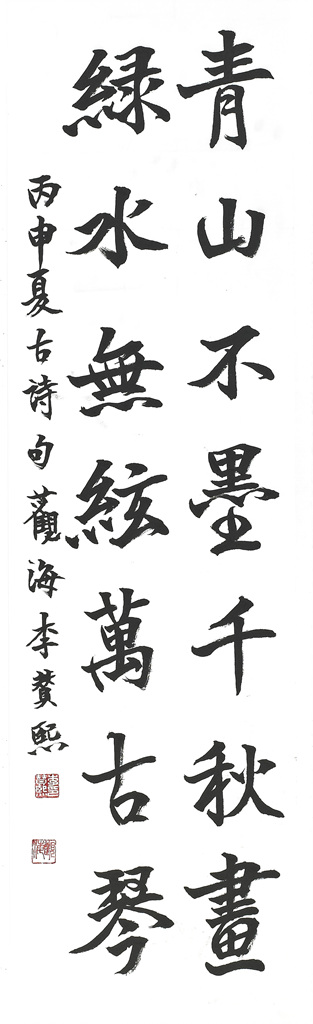 青山不墨千秋畫
綠水無絃萬古琴
丙申夏古詩句觀海李贊熙